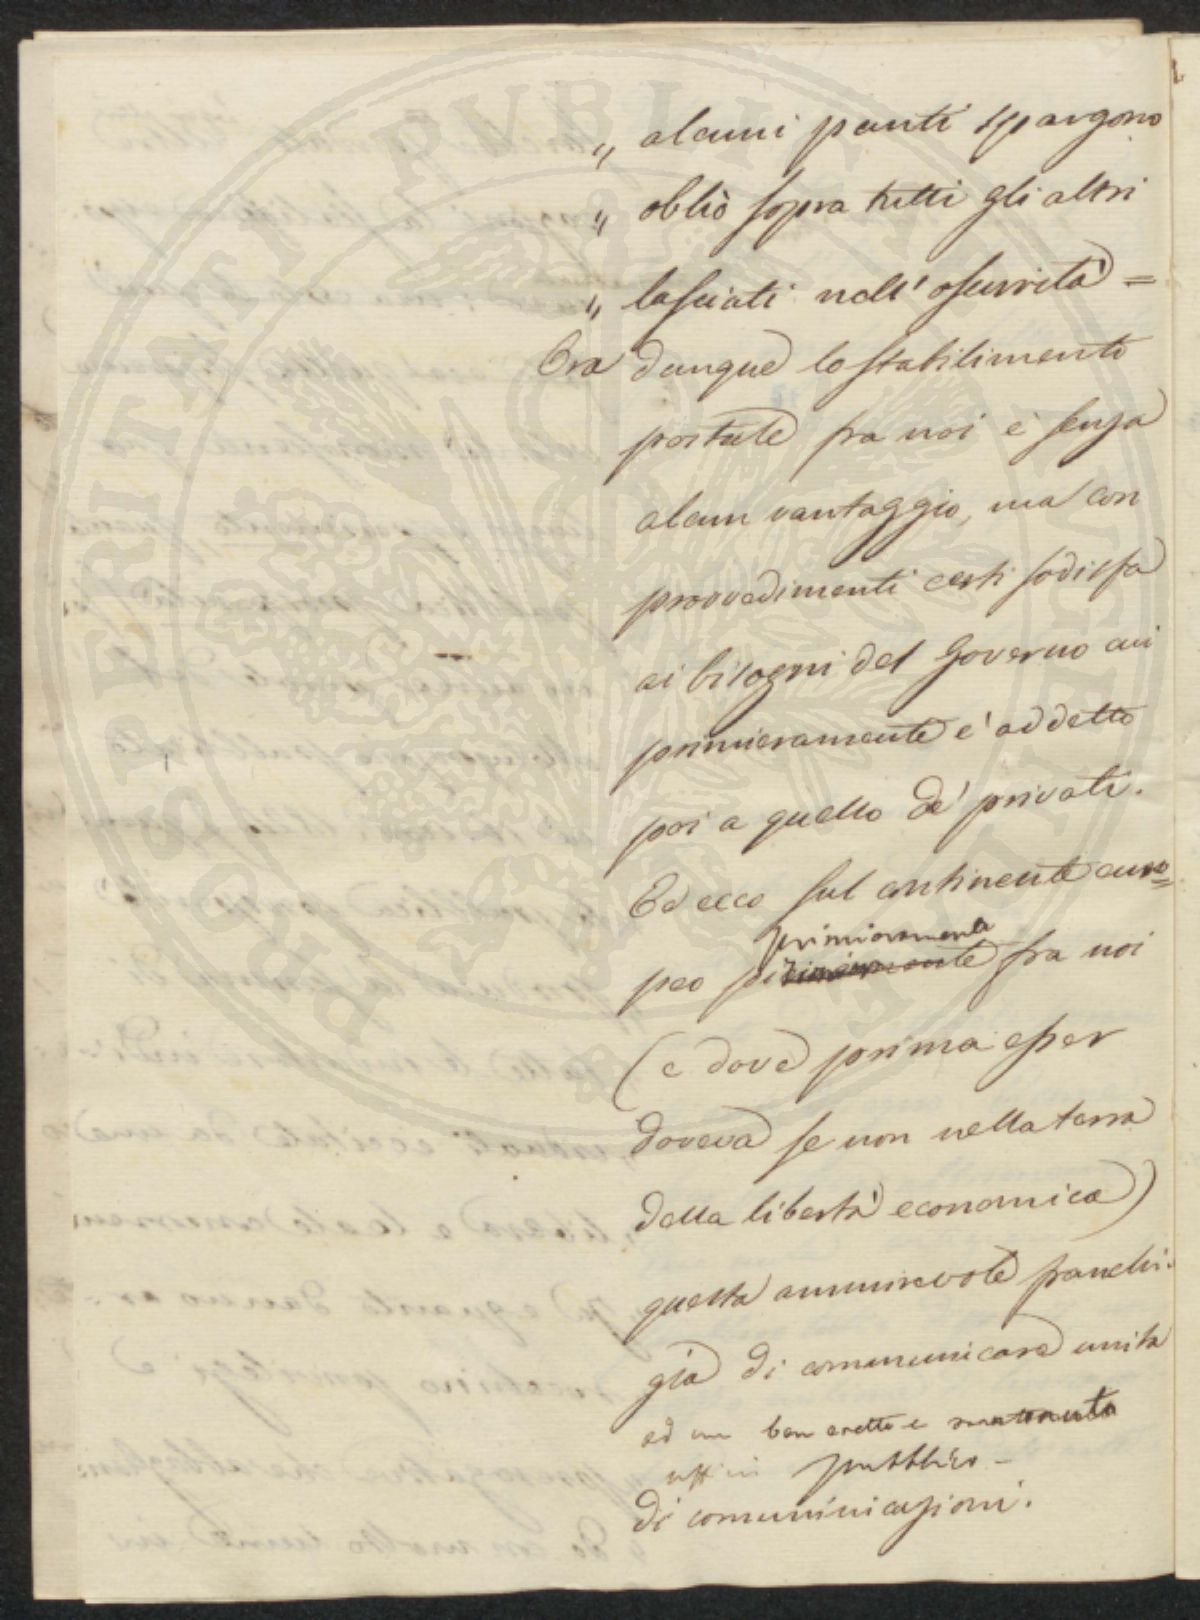 „ alcuni punti spargono
„ obliò sopra tutti gli altri
„ lasciati nell' oscurità =
Ora dunque lo stabilimento
postale fra noi è senza
alcun vantaggio, ma con
provvedimenti certi sodisfa
ai bisogni del Governo cui
primieramente e' addetto
poi a quello de' privati.
Ed ecco sul continente euro=
primieramente
peo fra noi
(e dove prima esser
doveva se non nella terra
della libertà economica)
questa ammirevole franchi.
gia di communicare unita
ad un ben eretto e mantenuto
uffizio pubblico -
di comunicazioni.
PROSPERITATI PVBLICAE AVGENDAE